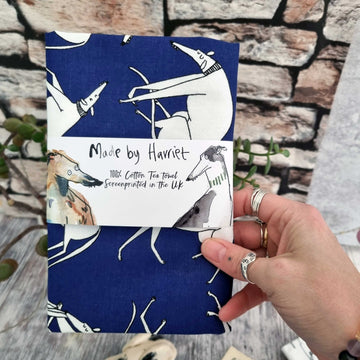 Made by Harriet
100% Cotton Tea towel
Screenprinted in the UK